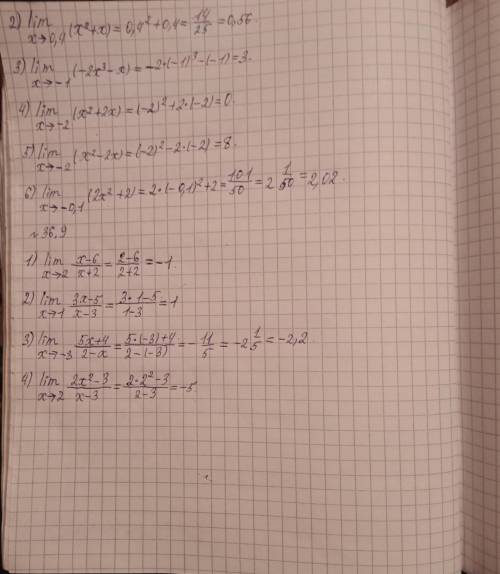 2) lim x→0,4 (x²+x) = 0,4² + 0,4 = 14/25 = 0,56
3) lim x→-1 (-2x³-x) = -2·(-1)³-(-1) = 3.
4) lim x→-2 (x²+2x) = (-2)²+2·(-2) = 0.
5) lim x→-2 (x²-2x) = (-2)²-2·(-2) = 8.
6) lim x→-0,1 (2x²+2) = 2·(-0,1)²+2 = 101/50 = 2 1/50 = 2,02.
№36,9
1) lim x→2 x-6/x+2 = 2-6/2+2 = -1.
2) lim x→1 3x-5/x-3 = 3·1-5/1-3 = 1
3) lim x→-3 5x+4/2-x = 5·(-3)+4/2-(-3) = -11/5 = -2 1/5 = -2,2
4) lim x→2 2x²-3/x-3 = 2·2²-3/2-3 = -5.